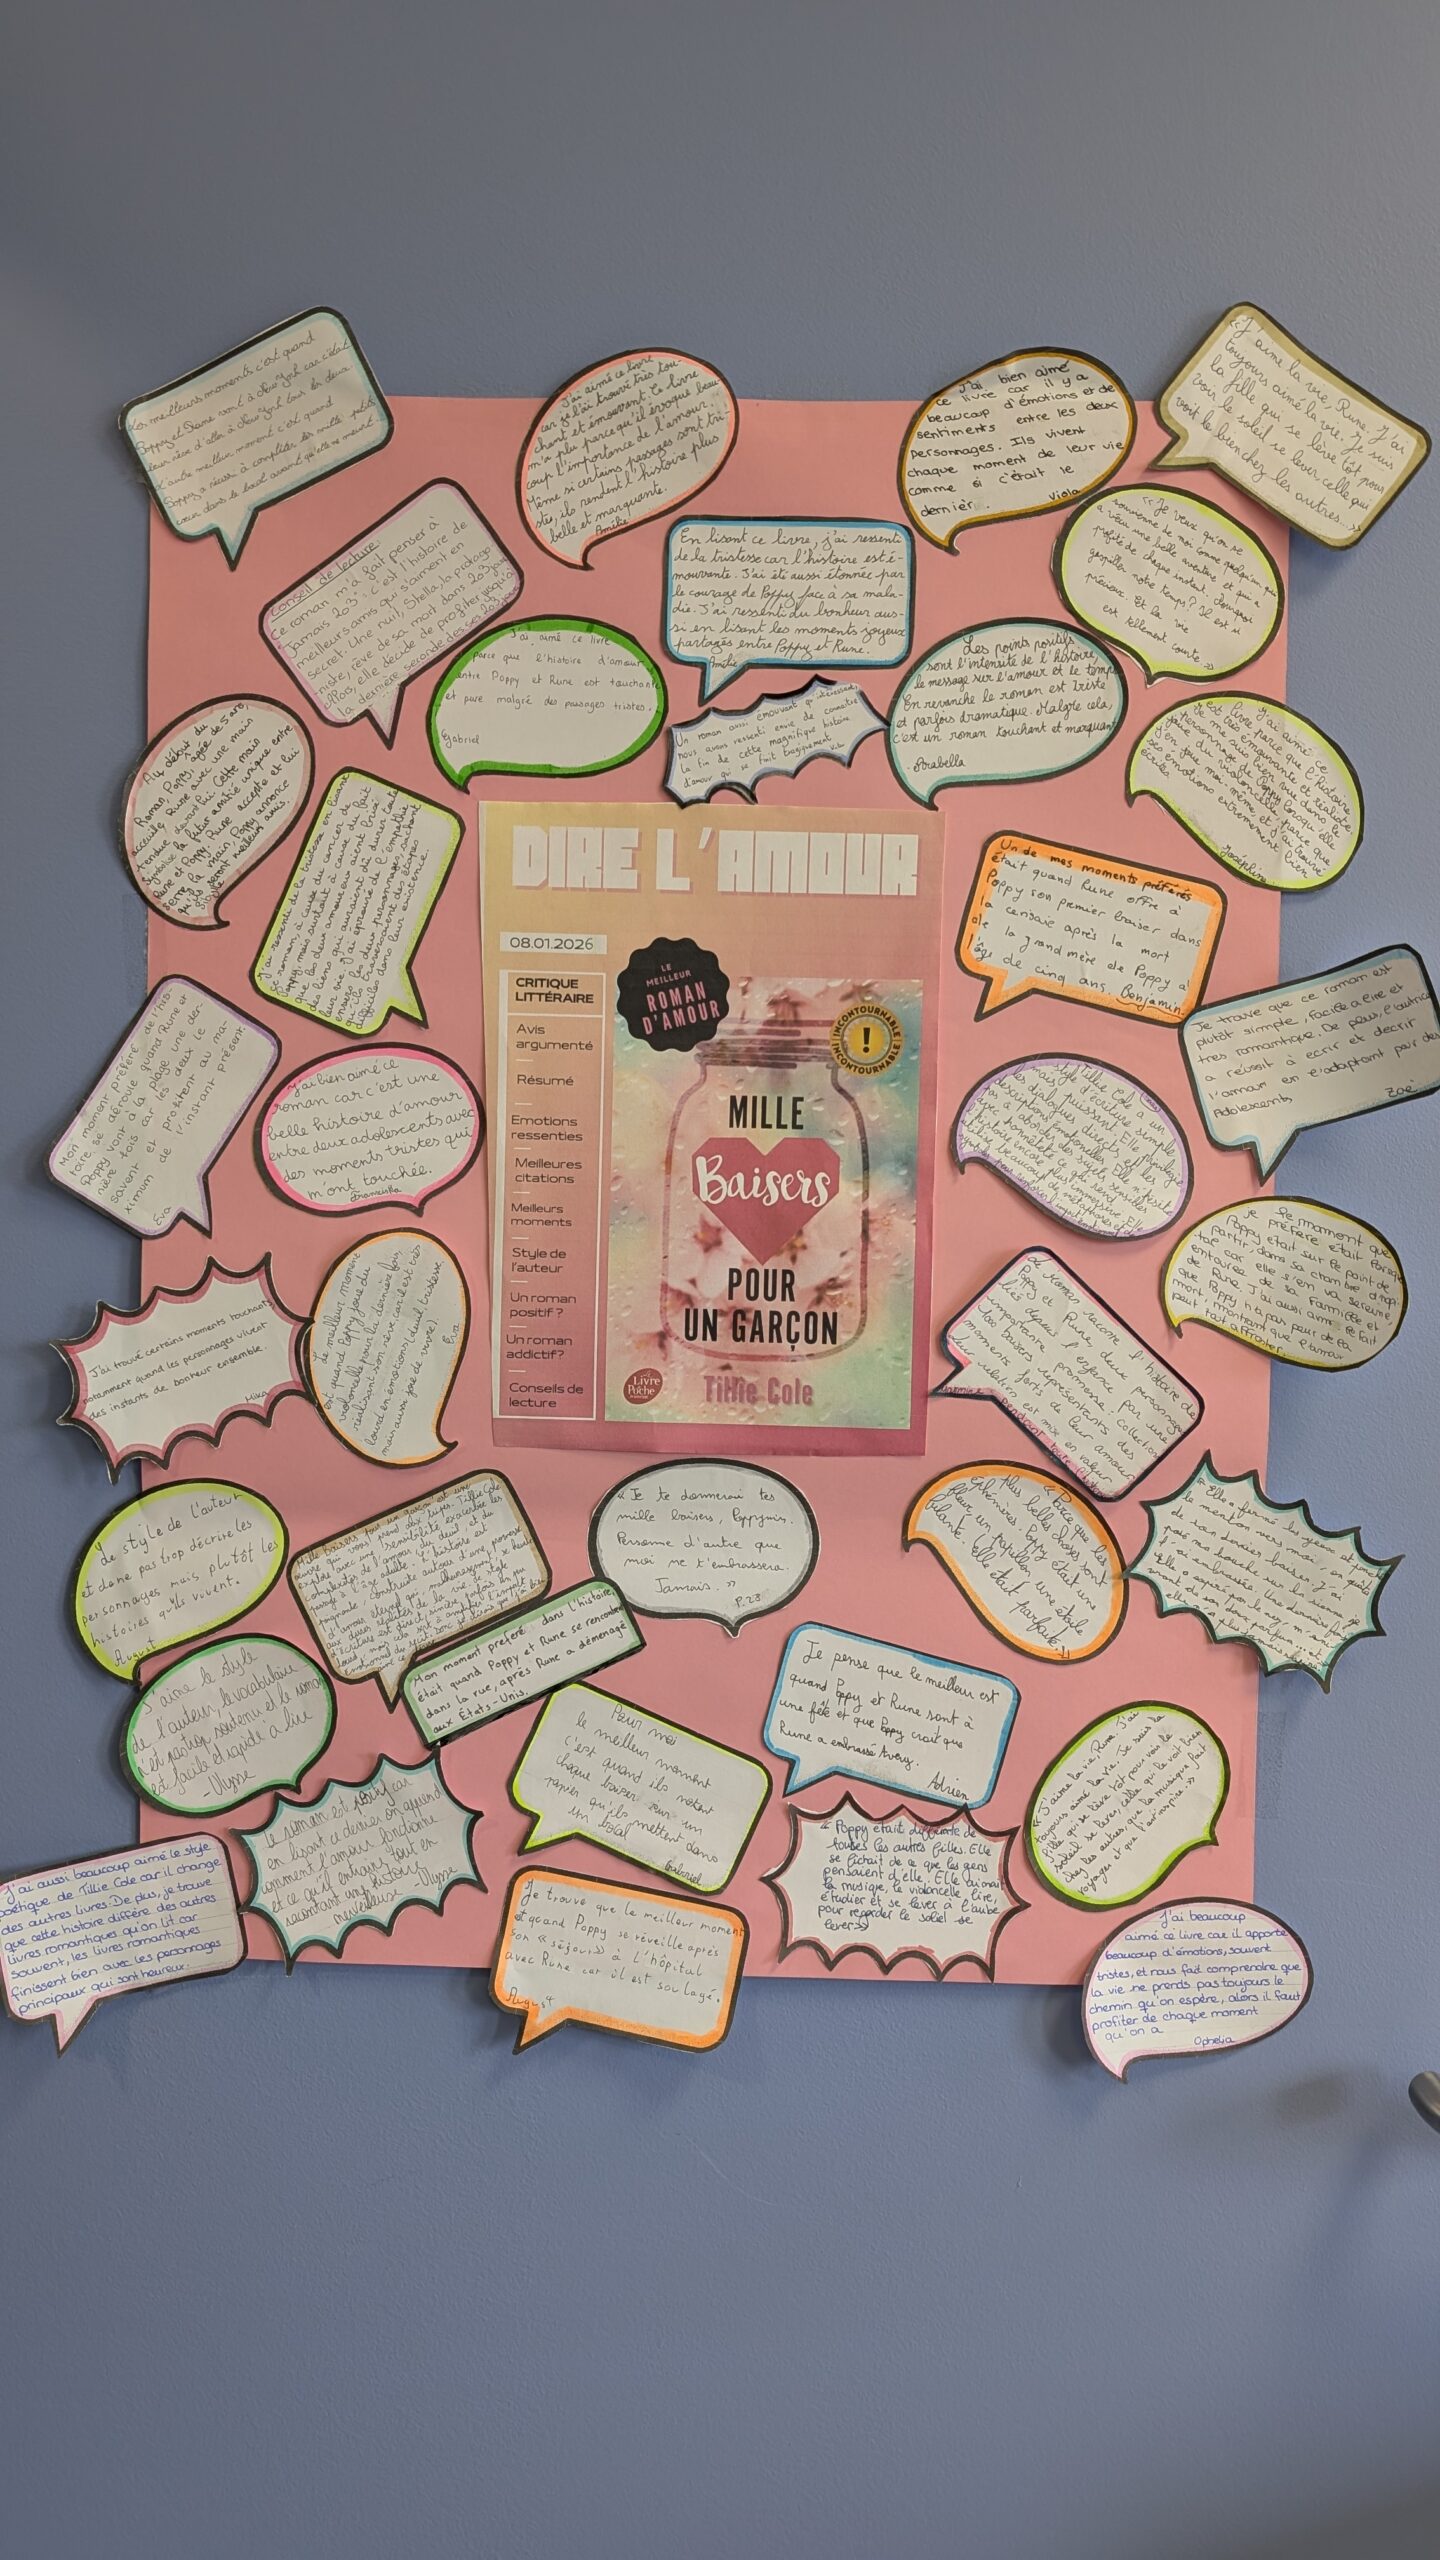 Les meilleurs moments c'est quand
Poppy et Rune vont à New York car c'était
leur rêve d'aller à New York tous les deux
L'autre meilleur moment c'est quand
Poppy a réussi à compléter les mille petits
cœur dans le bocal avant qu'elle ne meurt.
J'ai aimé ce livre
car je l'ai trouvé très tou-
chant et émouvant. Ce livre
m'a plu parce qu'il évoque beau-
coup l'importance de l'amour.
Même si certains passages sont tri-
stes, ils rendent l'histoire plus
belle et marquante.
Amélie
J'ai bien aimé
ce livre car il y a
beaucoup d'émotions et de
sentiments entre les deux
personnages. Ils vivent
chaque moment de leur vie
comme si c'était le
dernier.
Viola
«J'aime la vie, Rune. J'ai
toujours aimé la vie. Je suis
la fille qui se lève tôt pour
voir le soleil se lever celle qui
voit le bien chez les autres...»
Conseil de lecture:
Ce roman m'a fait penser à
"Jamais 203". C'est l'histoire de
meilleurs amis qui s'aiment en
secret. Une nuit, Stella, la protago
-niste, rêve de sa mort dans 203 jours
elle décide de profiter jusqu'à
la dernière seconde des ses 203 jours
En lisant ce livre, j'ai ressenti
de la tristesse car l'histoire est é-
mouvante. J'ai été aussi étonnée par
le courage de Poppy face à sa mala-
die. J'ai ressenti du bonheur aus-
si en lisant les moments joyeux
partagés entre Poppy et Rune.
Amélie
«Je veux qu'on se
souvienne de moi comme quelqu'un qui
a vécu une belle aventure et qui a
profité de chaque instant. Pourquoi
gaspiller notre temps? Il est si
précieux. Et la vie
est tellement courte.»
J'ai aimé ce livre
parce que l'histoire d'amour
entre Poppy et Rune est touchante
et pure malgré des passages tristes.
Gabriel
Un roman aussi émouvant qu'intéressant,
nous avons ressenti envie de connaître
la fin de cette magnifique histoire
d'amour qui se finit tragiquement
Les points positifs
sont l'intensité de l'histoire,
le message sur l'amour et le temps
En revanche le roman est triste
et parfois dramatique. Malgré cela,
c'est un roman touchant et marquant
- Arabella
J'ai aimé ce
livre parce que l'histoire
est très émouvante et réaliste.
Je me suis bien vue dans le
personnage de Poppy lorsqu'elle
joue du violoncelle, parce que
j'en joue moi-même, et j'ai trouvé
ses émotions extrêmement bien
écrites.
Joséphine
Au début du
Roman, Poppy, agée de 5 ans,
accueille Rune avec une main
tendue devant lui. Cette main
Symbolise la futur amitié unique entre
Rune et Poppy. Rune accepte et lui
serre la main, Poppy annonce
qu'ils seront meilleurs amis.
J'ai ressenti de la tristesse en lisant
ce roman, à cause du cancer de
Poppy, mais surtout à cause du fait
que les deux amoureux aient brisé
des liens qui auraient dû durer toute
leur vie. J'ai éprouvé de l'empathie
envers les deux personnages, sachant
qu'ils traversaient des étapes
difficiles dans leur existence.
DIRE L'AMOUR
08.01.2026
CRITIQUE
LITTÉRAIRE
Avis
argumenté
Résumé
Emotions
ressenties
Meilleures
citations
Meilleurs
moments
Style de
l'auteur
Un roman
positif ?
Un roman
addictif?
Conseils de
lecture
LE
MEILLEUR
ROMAN
D'AMOUR
INCONTOURNABLE
!
INCONTOURNABLE
MILLE
Baisers
POUR
UN GARÇON
Le
Livre
de
Poche
Tillie Cole
Un de mes moments préférés
était quand Rune offre à
Poppy son premier baiser dans
la cerisaie après la mort
de la grand mère de Poppy à
l'âge de cinq ans. Benjamin.
Je trouve que ce roman est
plutôt simple, facile a lire et
très romantique. De plus, l'autrice
a réussit à ecrit et decrir
l'amour en l'adaptant par des
Adolescents
Zoé
Mon moment préféré de l'his-
toire se déroule quand Rune et
Poppy vont à la plage une der-
nière fois car les deux le
savent et profitent au ma-
ximum de l'instant présent.
Eva
J'ai bien aimé ce
roman car c'est une
belle histoire d'amour
entre deux adolescents avec
des moments tristes qui
m'ont touchée.
Tillie Cole a un
style d'écriture simple
mais puissant. Elle privilégie
les dialogues directs et les
descriptions émotionnelles. Elle n'hésite
pas à aborder des sujets sensibles
avec honnêteté, ce qui rend
l'histoire encore plus immersive. Elle
utilise beaucoup de métaphores et de
Le moment que
je préfère était lorsque
Poppy était sur le point de
partir, dans sa chambre d'hopi-
tal car elle s'en va sereine,
entourée de sa famille et
de Rune. J'ai aussi aimé le fait
que Poppy n'a pas peur de la
mort, montrant que l'amour
peut tout affronter.
J'ai trouvé certains moments touchants
notamment quand les personnages vivent
des instants de bonheur ensemble.
Mika
Le meilleur moment
est quand Poppy joue du
violoncelle pour la dernière fois,
réalisant son rêve, car il est très
lourd en émotions (deuil, tristesse,
mais aussi joie de vivre).
Eva
Le Roman raconte l'histoire de
Poppy et Rune, deux personnages
liés depuis l'enfance par une
importante promesse: collectionner
1000 baisers représentants des
moments forts de leur amour
Leur relation est mix en valeur
pendant toute l'histoire
Le style de l'auteur
et donc pas trop décrire les
personnages mais plutôt les
histoires qu'ils vivent.
August
Mille Baisers pour un garçon est une
œuvre qui vous prend aux tripes. Tillie Cole
explore avec une sensibilité exacerbée les
complexités de l'amour, du deuil, et du
passage à l'âge adulte. L'histoire est
poignante, construite autour d'une promesse
d'amour éternel qui, malheureusement, se heurte
aux dures réalités de la vie. Le style
d'écriture est direct, sincère, parfois un peu
lourd, mais cela sert à amplifier l'impact
émotionnel du récit.
«Je te donnerai tes
mille baisers, Poppymin.
Personne d'autre que
moi ne t'embrassera.
Jamais.»
P.23
«Parce que les
plus belles choses sont
éphémères. Poppy était une
fleur, un papillon, une étoile
filante. Elle était parfaite.»
«Elle a fermé les yeux et penché
le menton vers moi, en quête
de son dernier baiser. J'ai
posé ma bouche sur la sienne, je
l'ai embrassée. Une dernière fois.
Mon moment préféré dans l'histoire,
était quand Poppy et Rune se rencontre
dans la rue, après Rune a déménagé
aux États-Unis.
J'aime le style
de l'auteur, le vocabulaire
n'est pas trop soutenu et le roman
est facile et rapide a lire
- Ulysse
Pour moi
le meilleur moment
c'est quand ils notent
chaque baiser sur un
papier qu'ils mettent dans
un bocal
Gabriel
Je pense que le meilleur est
quand Poppy et Rune sont à
une fête et que Poppy crait que
Rune a embrassé Avery.
Adrien
«J'aime la vie, Rune. J'ai
toujours aimé la vie. Je suis la
fille qui se lève tôt pour voir le
soleil se lever, celle qui voit le bien
chez les autres, que la musique fait
voyager et que l'art inspire.»
Le roman est positif car
en lisant ce dernier on apprend
comment l'amour fonctionne
et ce qu'il entique tout en
racontant une histoire
merveilleuse - Ulysse
«Poppy était différente de
toutes les autres filles. Elle
se fichait de ce que les gens
pensaient d'elle. Elle aimait
la musique, le violoncelle, lire,
étudier et se lever à l'aube
pour regarder le soleil se
lever»
J'ai aussi beaucoup aimé le style
poétique de Tillie Cole car il change
des autres livres. De plus, je trouve
que cette histoire diffère des autres
livres romantiques qu'on lit car
souvent, les livres romantiques
finissent bien avec les personnages
principaux qui sont heureux.
Je trouve que le meilleur moment
et quand Poppy se réveille après
son «séjour» à l'hôpital
avec Rune car il est soulagé.
August
J'ai beaucoup
aimé ce livre car il apporte
beaucoup d'émotions, souvent
tristes, et nous fait comprendre que
la vie ne prends pas toujours le
chemin qu'on espère, alors il faut
profiter de chaque moment
qu'on a
Ophelia